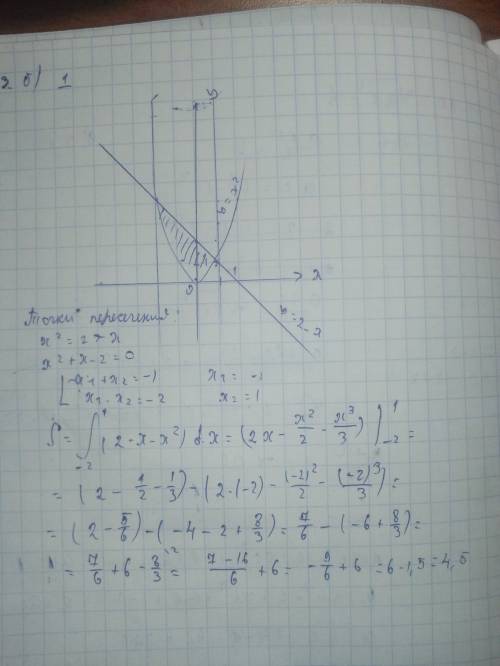 2 б) 1
y
y = x²
0
1
x
y = 2 - x
Точки пересечения:
x² = 2 - x
x² + x - 2 = 0
x₁ + x₂ = -1 x₁ = -1
x₁ · x₂ = -2 x₂ = 1
S = ∫₋₂¹ (2 - x - x²) dx = (2x - x²/2 - x³/3) |₋₂¹ =
= (2 - 1/2 - 1/3) - (2·(-2) - (-2)²/2 - (-2)³/3) =
= (2 - 5/6) - (-4 - 2 + 8/3) = 7/6 - (-6 + 8/3) =
= 7/6 + 6 - 8/3 = 7 - 16/6 + 6 = -9/6 + 6 = 6 - 1,5 = 4,5